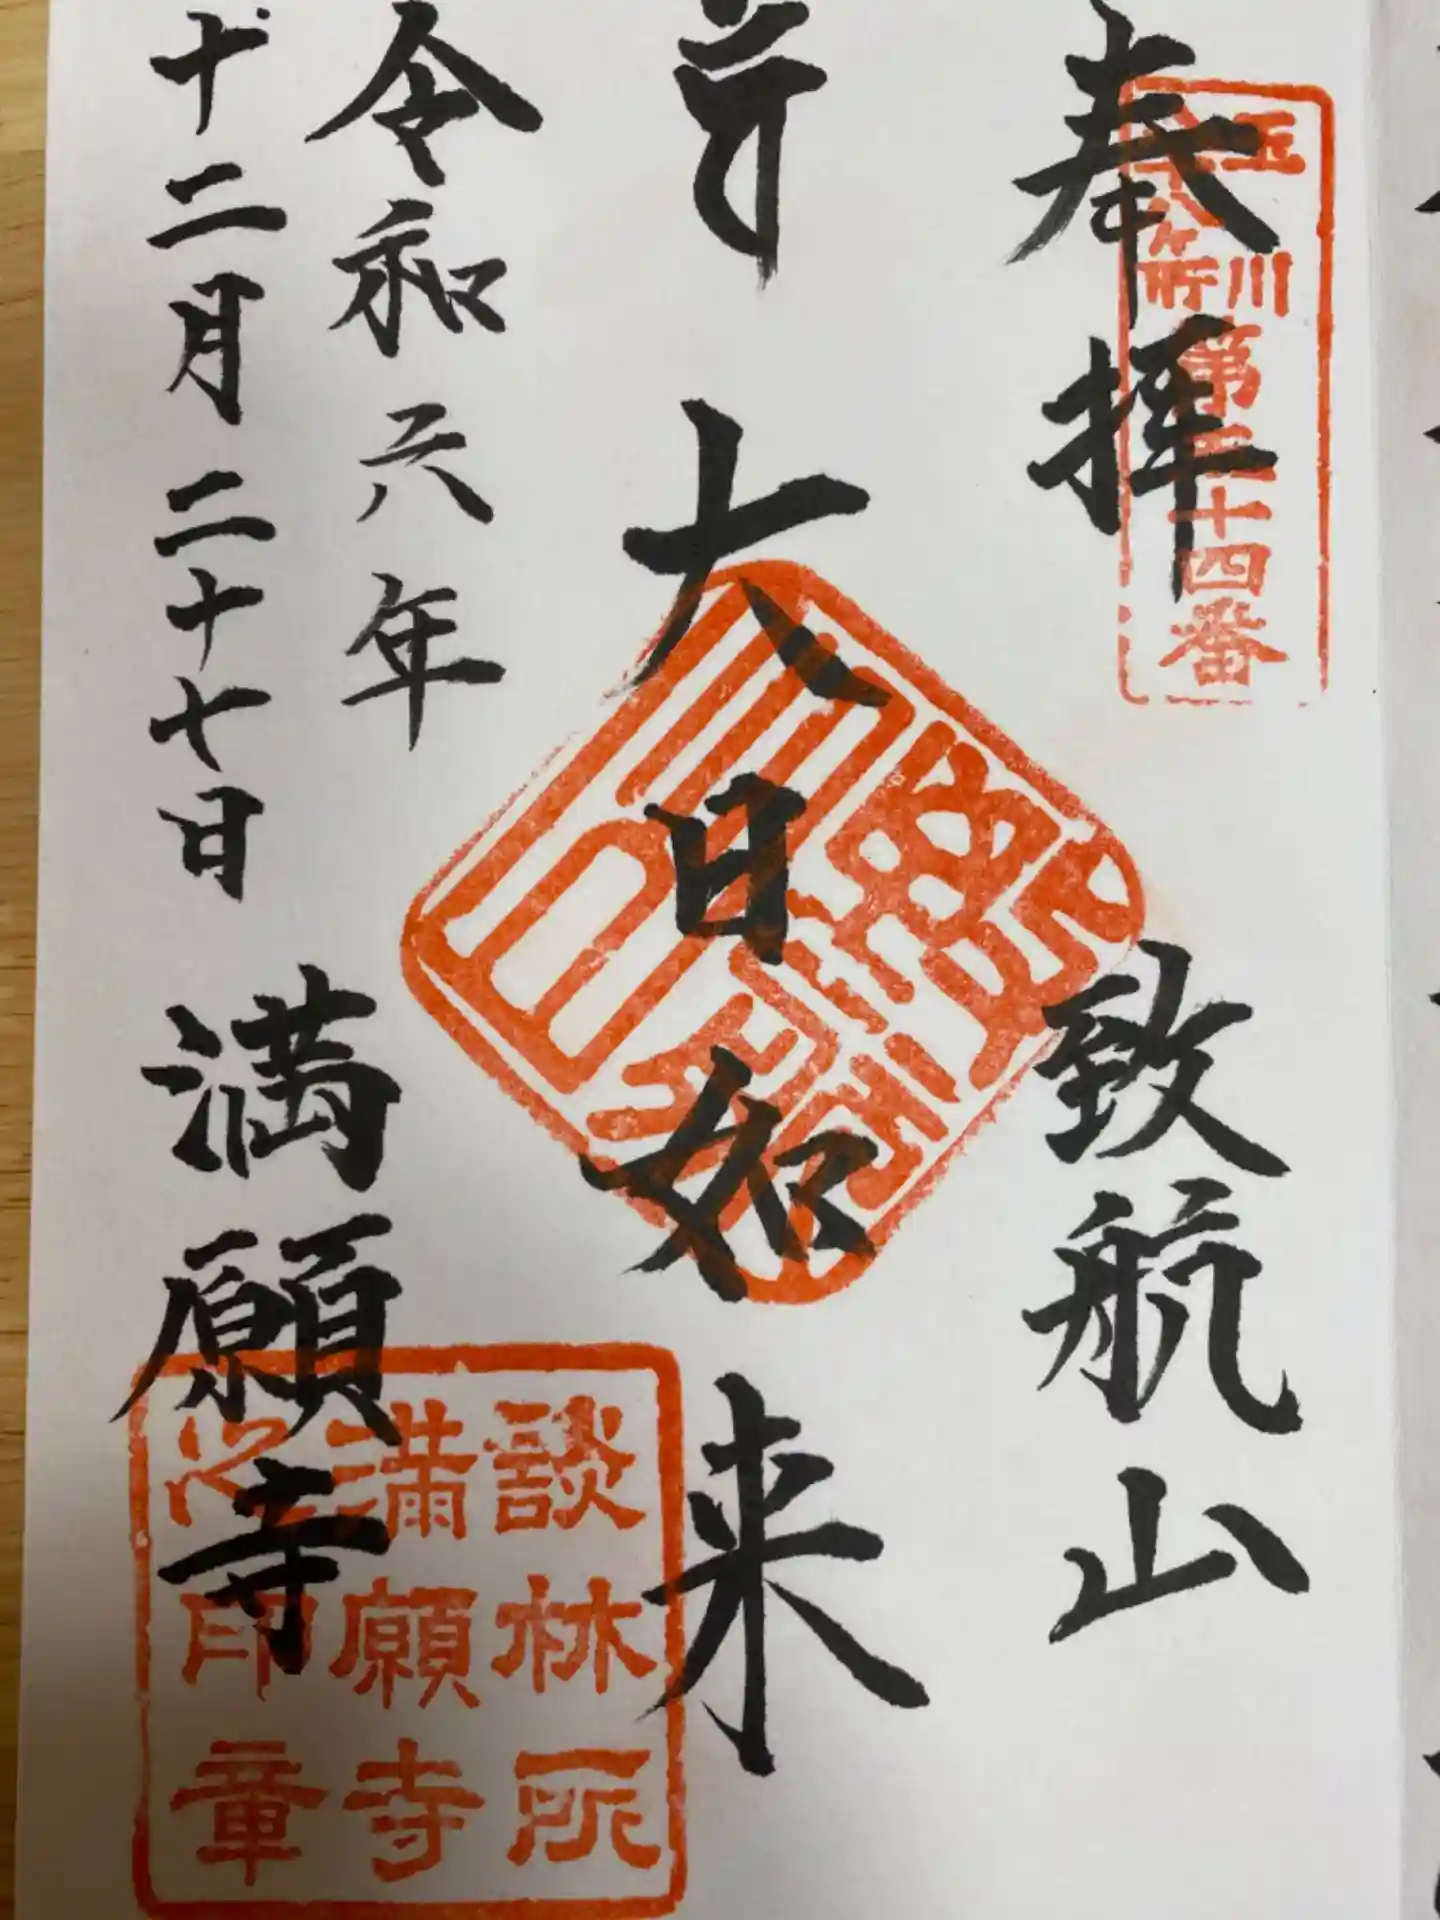 奉拝
玉川
八十八ヶ所
第三十四番
致航山
大日如来
令和六年
十二月二十七日
満願寺
談林所
満願寺
之印章